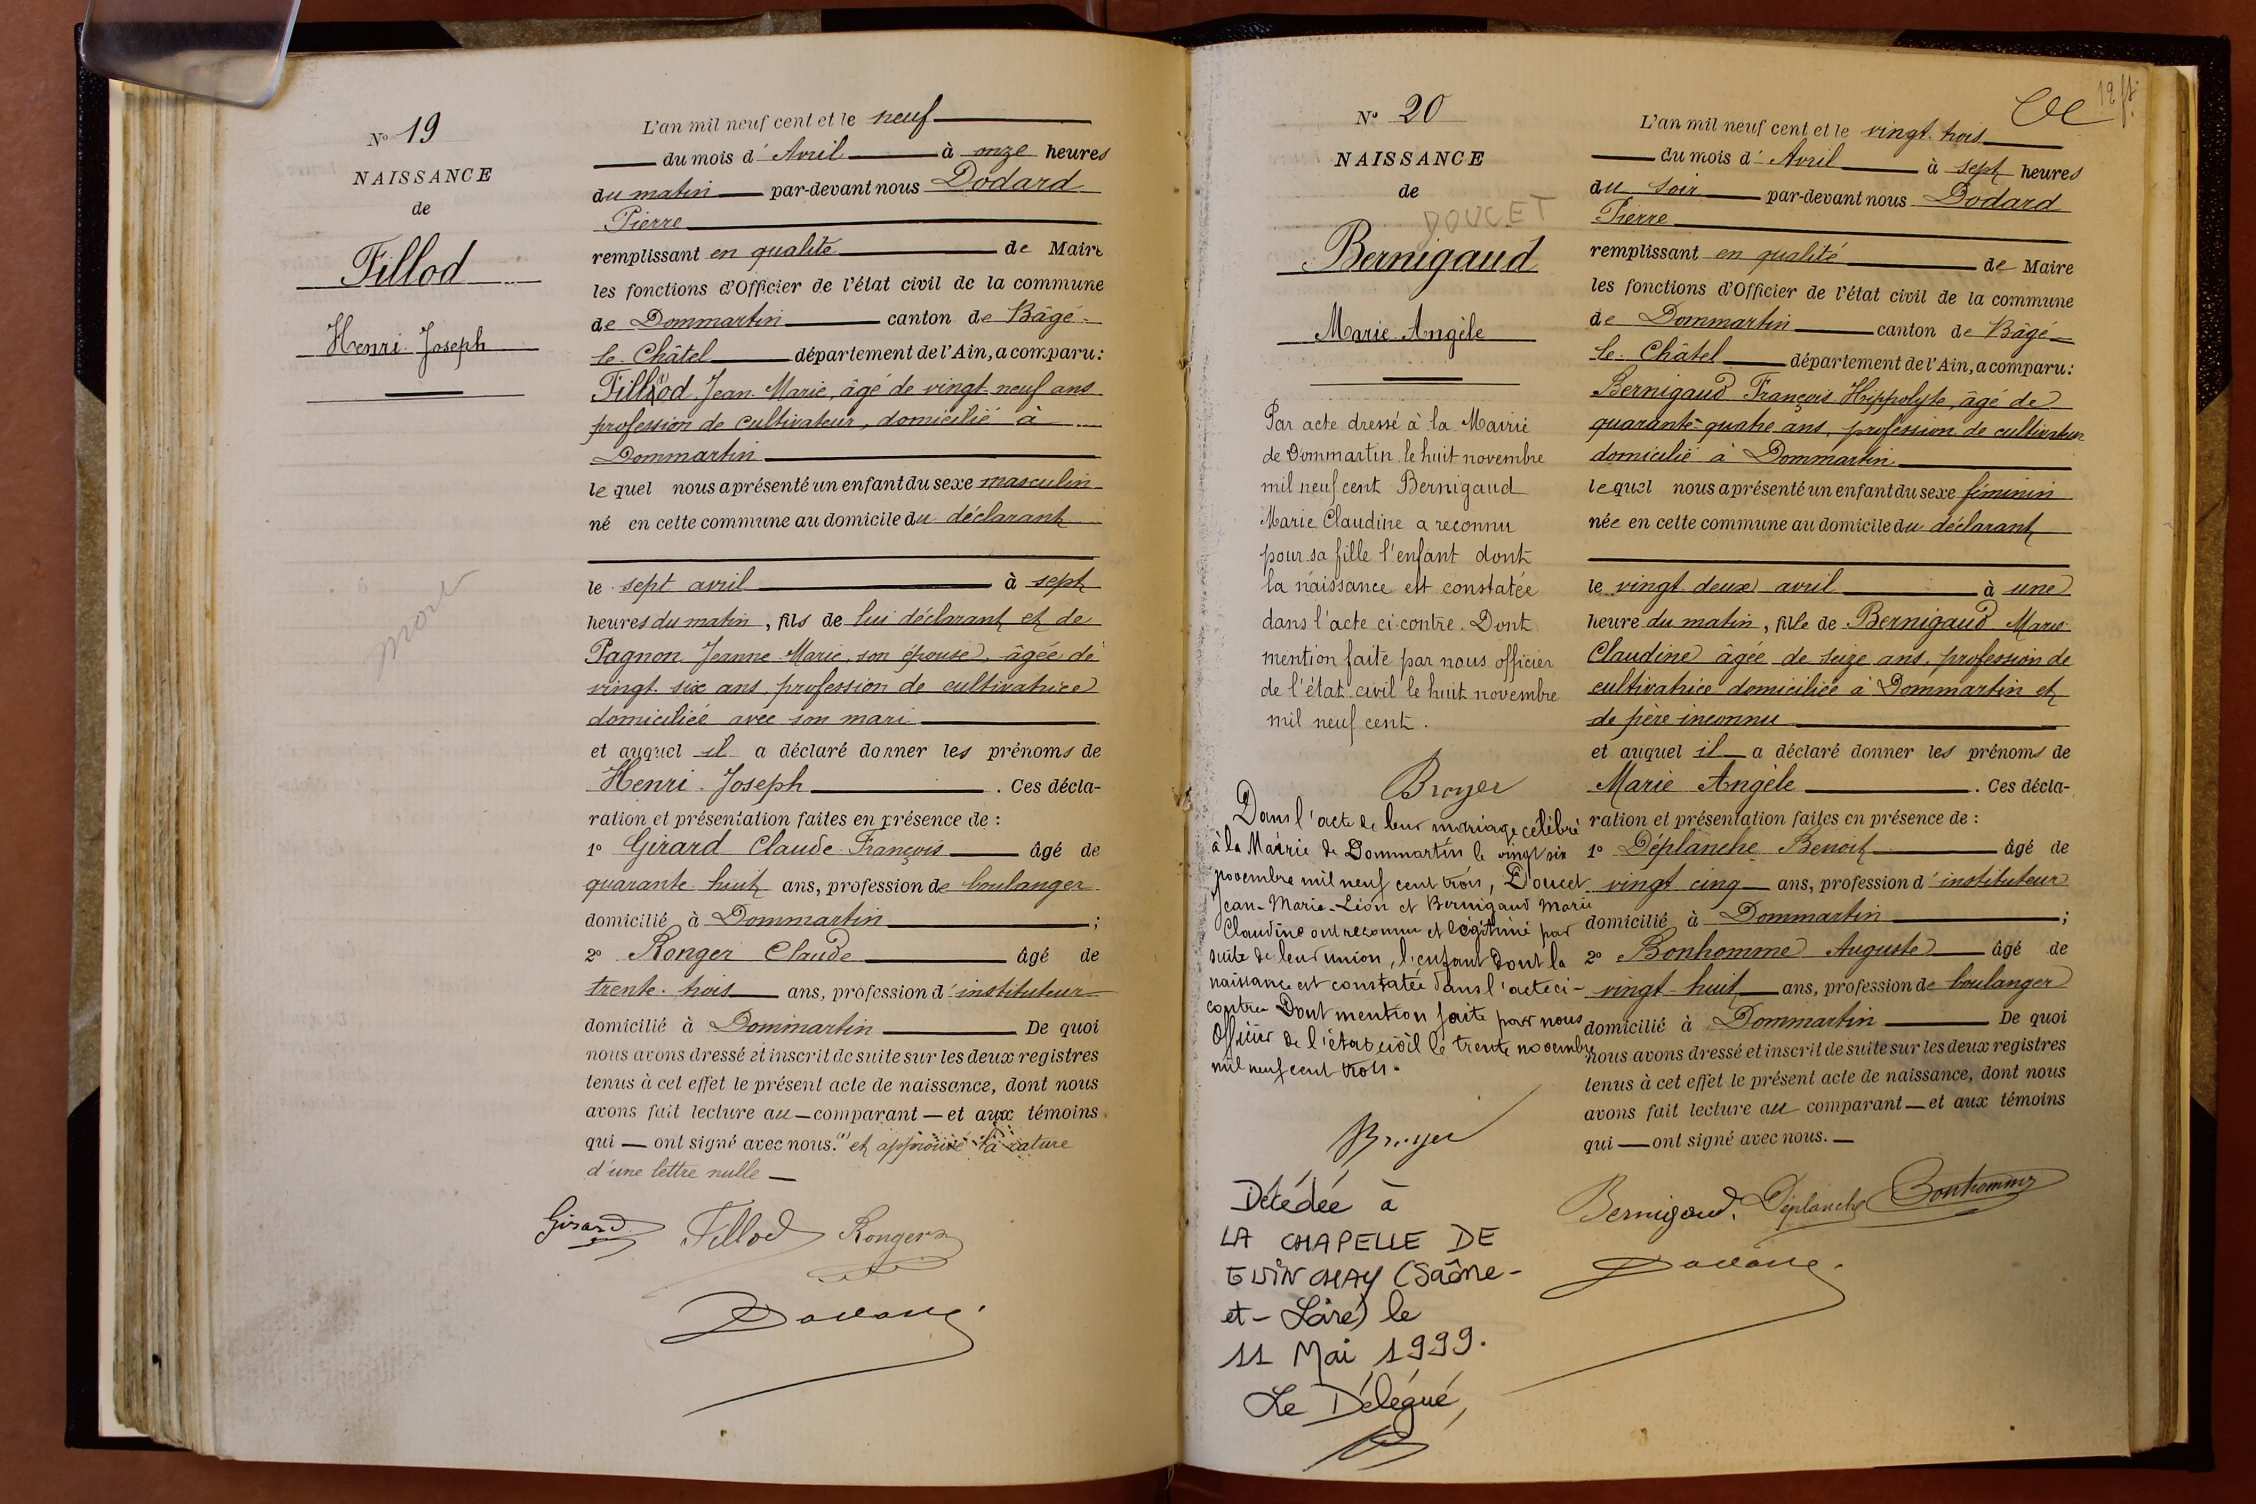 N° 19
NAISSANCE
de
Fillod
Henri Joseph
mort
L'an mil neuf cent et le neuf
du mois d'Avril à onze heures
du matin par-devant nous Dodard
Pierre
remplissant en qualité de Maire
les fonctions d'Officier de l'état civil de la commune
de Dommartin canton de Bâgé-
le-Châtel département de l'Ain, a comparu:
Fillod Jean Marie, âgé de vingt-neuf ans
profession de cultivateur, domicilié à
Dommartin
lequel nous a présenté un enfant du sexe masculin
né en cette commune au domicile du déclarant
le sept avril à sept
heures du matin, fils de lui déclarant et de
Pagnon Jeanne Marie, son épouse, âgée de
vingt-six ans, profession de cultivatrice
domiciliée avec son mari
et auquel il a déclaré donner les prénoms de
Henri Joseph. Ces décla-
ration et présentation faites en présence de :
1° Girard Claude François âgé de
quarante huit ans, profession de boulanger
domicilié à Dommartin ;
2° Ronger Claude âgé de
trente-trois ans, profession d'instituteur
domicilié à Dommartin De quoi
nous avons dressé et inscrit de suite sur les deux registres
tenus à cet effet le présent acte de naissance, dont nous
avons fait lecture au — comparant — et aux témoins
qui — ont signé avec nous. (1) et approuvé la rature
d'une lettre nulle —
Girard Fillod Ronger
12 ft
N° 20
NAISSANCE
de
DOUCET
Bernigaud
Marie Angèle
Par acte dressé à la Mairie
de Dommartin le huit novembre
mil neuf cent Bernigaud
Marie Claudine a reconnu
pour sa fille l'enfant dont
la naissance est constatée
dans l'acte ci-contre. Dont
mention faite par nous officier
de l'état civil le huit novembre
mil neuf cent.
Broyer
Dans l'acte de leur mariage célébré
à la Mairie de Dommartin le vingt six
novembre mil neuf cent trois, Doucet
Jean-Marie-Léon et Bernigaud Marie
Claudine ont reconnu et légitimé par
suite de leur union, l'enfant dont la
naissance est constatée dans l'acte ci-
contre. Dont mention faite par nous
Officier de l'état civil le trente novembre
mil neuf cent trois.
Broyer
Décédée à
LA CHAPELLE DE
GUINCHAY (Saône-
et-Loire) le
11 Mai 1999.
Le Délégué,
L'an mil neuf cent et le vingt-trois
du mois d'Avril à sept heures
du soir par-devant nous Dodard
Pierre
remplissant en qualité de Maire
les fonctions d'Officier de l'état civil de la commune
de Dommartin canton de Bâgé-
le-Châtel département de l'Ain, a comparu:
Bernigaud François Hippolyte, âgé de
quarante-quatre ans, profession de cultivateur
domicilié à Dommartin
lequel nous a présenté un enfant du sexe féminin
née en cette commune au domicile du déclarant
le vingt deux avril à une
heure du matin, fille de Bernigaud Marie
Claudine âgée de seize ans, profession de
cultivatrice domiciliée à Dommartin et
de père inconnu
et auquel il a déclaré donner les prénoms de
Marie Angèle. Ces décla-
ration et présentation faites en présence de :
1° Déplanche Benoit âgé de
vingt cinq ans, profession d'instituteur
domicilié à Dommartin ;
2° Bonhomme Auguste âgé de
vingt-huit ans, profession de boulanger
domicilié à Dommartin De quoi
nous avons dressé et inscrit de suite sur les deux registres
tenus à cet effet le présent acte de naissance, dont nous
avons fait lecture au comparant — et aux témoins
qui — ont signé avec nous. —
Bernigaud. Déplanche Bonhomme